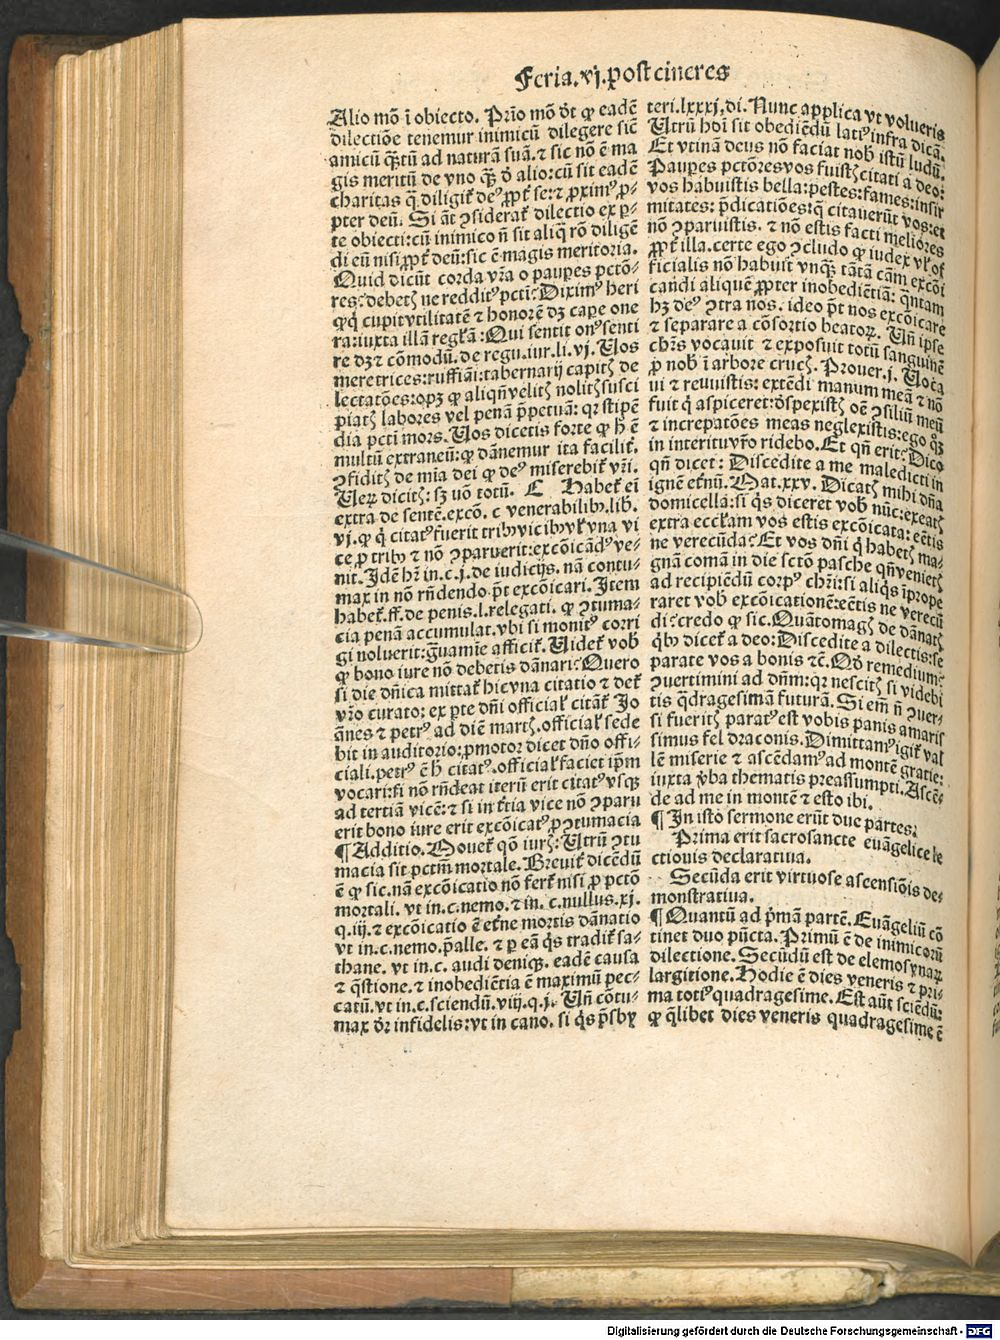 Feria.vj.post cineres
Alio mō ī obiecto. Prīo mō ōt ꝙ eadē
dilectiōe tenemur inimicū dilegere sicē
amicū q̄ꝫtū ad naturā suā.⁊ sic nō ē ma
gis meritū de vno q̄ꝫ ō alio:cū sit eadē
charitas q̄ diligit̄ deꝰ ꝓpt̄ se:⁊ ꝓximꝰ ꝓ-
pter deū. Si āt ↄsiderat̄ dilectio ex ꝑ-
te obiecti:cū inimico ñ sit aliq̄ rō diligē
di eū nisi ꝓpt̄ deū:sic ē magis meritoria.
Quid dicūt corda vr̄a o pauꝑes pctō-
res:debetꝭ ne redditꝰ pcti? Diximꝰ heri
ꝙ q̇ cupit vtilitatē ⁊ honorē dꝫ caꝑe one
ra:iuxta illā regl̄ā:Qui sentit onꝰ senti
re dꝫ ⁊ cōmodū.de regu.iur.li.vj. Uos
meretrices:ruffiāi:tabernarij capitꝭ de
lectatōes:opꝫ ꝙ aliqñ velitꝭ nolitꝭ susci
piatꝭ labores vel penā ꝑpetuā:qꝛ stipē
dia pcti mors. Uos dicetis forte ꝙ h̄ ē
multū extraneū:ꝙ dānemur ita facilit̄.
ↄfiditꝭ de mīa dei ꝙ deꝰ miserebit̄ vr̄i.
Ueꝝ dicitꝭ: sꝫ uō totū. C Habet̄ ei
extra de sentē.excō. c venerabilibꝰ.lib.
vj.ꝙ q̇ citatꝰ fuerit tribꝰ vicibꝰ vl̄ vna vi
ce ꝓ tribꝰ ⁊ nō ↄparuerit:excōicādꝰ ve-
nit. Idē hr̄ in.c.j.de iudicijs. nā contu-
max in nō rn̄dendo p̄t excōicari. Item
habet̄.ff.de penis.l.relegati. ꝙ ↄtuma-
cia penā accumulat.vbi si monitꝰ corri
gi noluerit:grauamīe afficit̄. Uidet̄ vob̄
ꝙ bono iure nō debetis dānari? Quero
si die dn̄ica mittat̄ hic vna citatio ⁊ det̄
vr̄o curato: ex ꝑte dn̄i official̄ citāt̄ Jo
ānes ⁊ petrꝰ ad diē martꝭ.official̄ sede
bit in auditorio:ꝓmotor dicet dn̄o offi-
ciali.petrꝰ ē h̄ citatꝰ.official̄ faciet ip̄m
vocari:si nō rn̄deat iterū erit citatꝰ vsqꝫ
ad tertiā vicē:⁊ si in t̄tia vice nō ↄparu
erit bono iure erit excōicatꝰ ꝓ ↄtumacia
¶ Additio. Mouet̄ qō iurꝭ: Utrū ↄtu
macia sit pctm̄ mortale. Breuit̄ dicēdū
ē ꝙ sic.nā excōicatio nō fert̄ nisi ꝓ pctō
mortali. vt in.c.nemo.⁊ in. c.nullus.xj.
q.iij.⁊ excōicatio ē et̄ne mortis dānatio
vt in.c.nemo.p̄alle. ⁊ ꝑ eā q̇s tradit̄ sa-
thane. vt in.c. audi deniqꝫ. eadē causa
⁊ q̄stione.⁊ inobediētia ē maximū pec-
catū.vt in.c.sciendū.viij.q.j. Un̄ cōtu-
max ōr infidelis:vt in cano. si q̇s p̄sby
teri.lxxxj.di. Nunc applica vt volueris
Utrū hōi sit obediēdū latiꝰ infra dicā.
Et vtinā deus nō faciat nob̄ istū ludū.
Pauꝑes pctōres vos fuistꝭ citati a deo:
vos habuistis bella:pestes:fames:infir
mitates: p̄dicatiōes:q̄ citauerūt vos:et
nō ↄparuistis. ⁊ nō estis facti meliores
ꝓpt̄ illa.certe ego ↄcludo ꝙ iudex vl̄ of
ficialis nō habuit vnqꝫ tātā cām excōi
candi aliquē ꝓpter inobediētiā: q̄ntam
hꝫ deꝰ ↄtra nos. ideo p̄t nos excōicare
⁊ separare a cōsortio beatoꝝ. Un̄ ipse
chr̄s vocauit ⁊ exposuit totū sanguinē
ꝓ nob̄ ī arbore crucꝭ. Prouer.j. Uoca
ui ⁊ renuistis: extēdi manum meā ⁊ nō
fuit q̇ aspiceret:dspexistꝭ oē ↄsiliū meū
⁊ increpatōes meas neglexistis:ego qꝫ
in interitu vr̄o ridebo. Et qn̄ erit? Dico
qn̄ dicet: Discedite a me maledicti in
ignē et̄nū. Mat.xxv. Dicatꝭ mihi dn̄a
domicella:si q̇s diceret vob̄ nūc:exeatꝭ
extra eccl̄am vos estis excōicata:eētis
ne verecūda? Et vos dn̄i q̇ habetꝭ ma-
gnā comā in die sctō pasche qn̄ venietꝭ
ad recipiēdū corpꝰ chr̄i:si aliq̇s īprope
raret vob̄ excōicationē:eētis ne verecū
di? credo ꝙ sic. Quātomagꝭ de dānatꝭ
q̇bꝰ dicet̄ a deo: Discedite a dilectis:se
parate vos a bonis ⁊c̄. Qd remedium?
ↄuertimini ad dn̄m:qꝛ nescitꝭ si videbi
tis q̄dragesimā futurā. Si em̄ ñ ↄuer-
si fueritꝭ paratꝰ est vobis panis amaris
simus fel draconis. Dimittamꝰ igit̄ val
lē miserie ⁊ ascēdamꝰ ad montē gratie:
iuxta v̄ba thematis preassumpti. Ascē-
de ad me in montē ⁊ esto ibi.
¶ In isto sermone erūt due partes.
Prima erit sacrosancte euāgelice le
ctionis declaratiua.
Secūda erit virtuose ascensiōis de-
monstratiua.
¶ Quantū ad p̄mā partē. Euāgeliū cō
tinet duo pūcta. Primū ē de inimicorū
dilectione. Secūdū est de elemosynaꝝ
largitione. Hodie ē dies veneris ⁊ pri-
ma totiꝰ quadragesime. Est aūt sciēdū:
ꝙ q̄libet dies veneris quadragesime ē
Digitalisierung gefördert durch die Deutsche Forschungsgemeinschaft - DFG